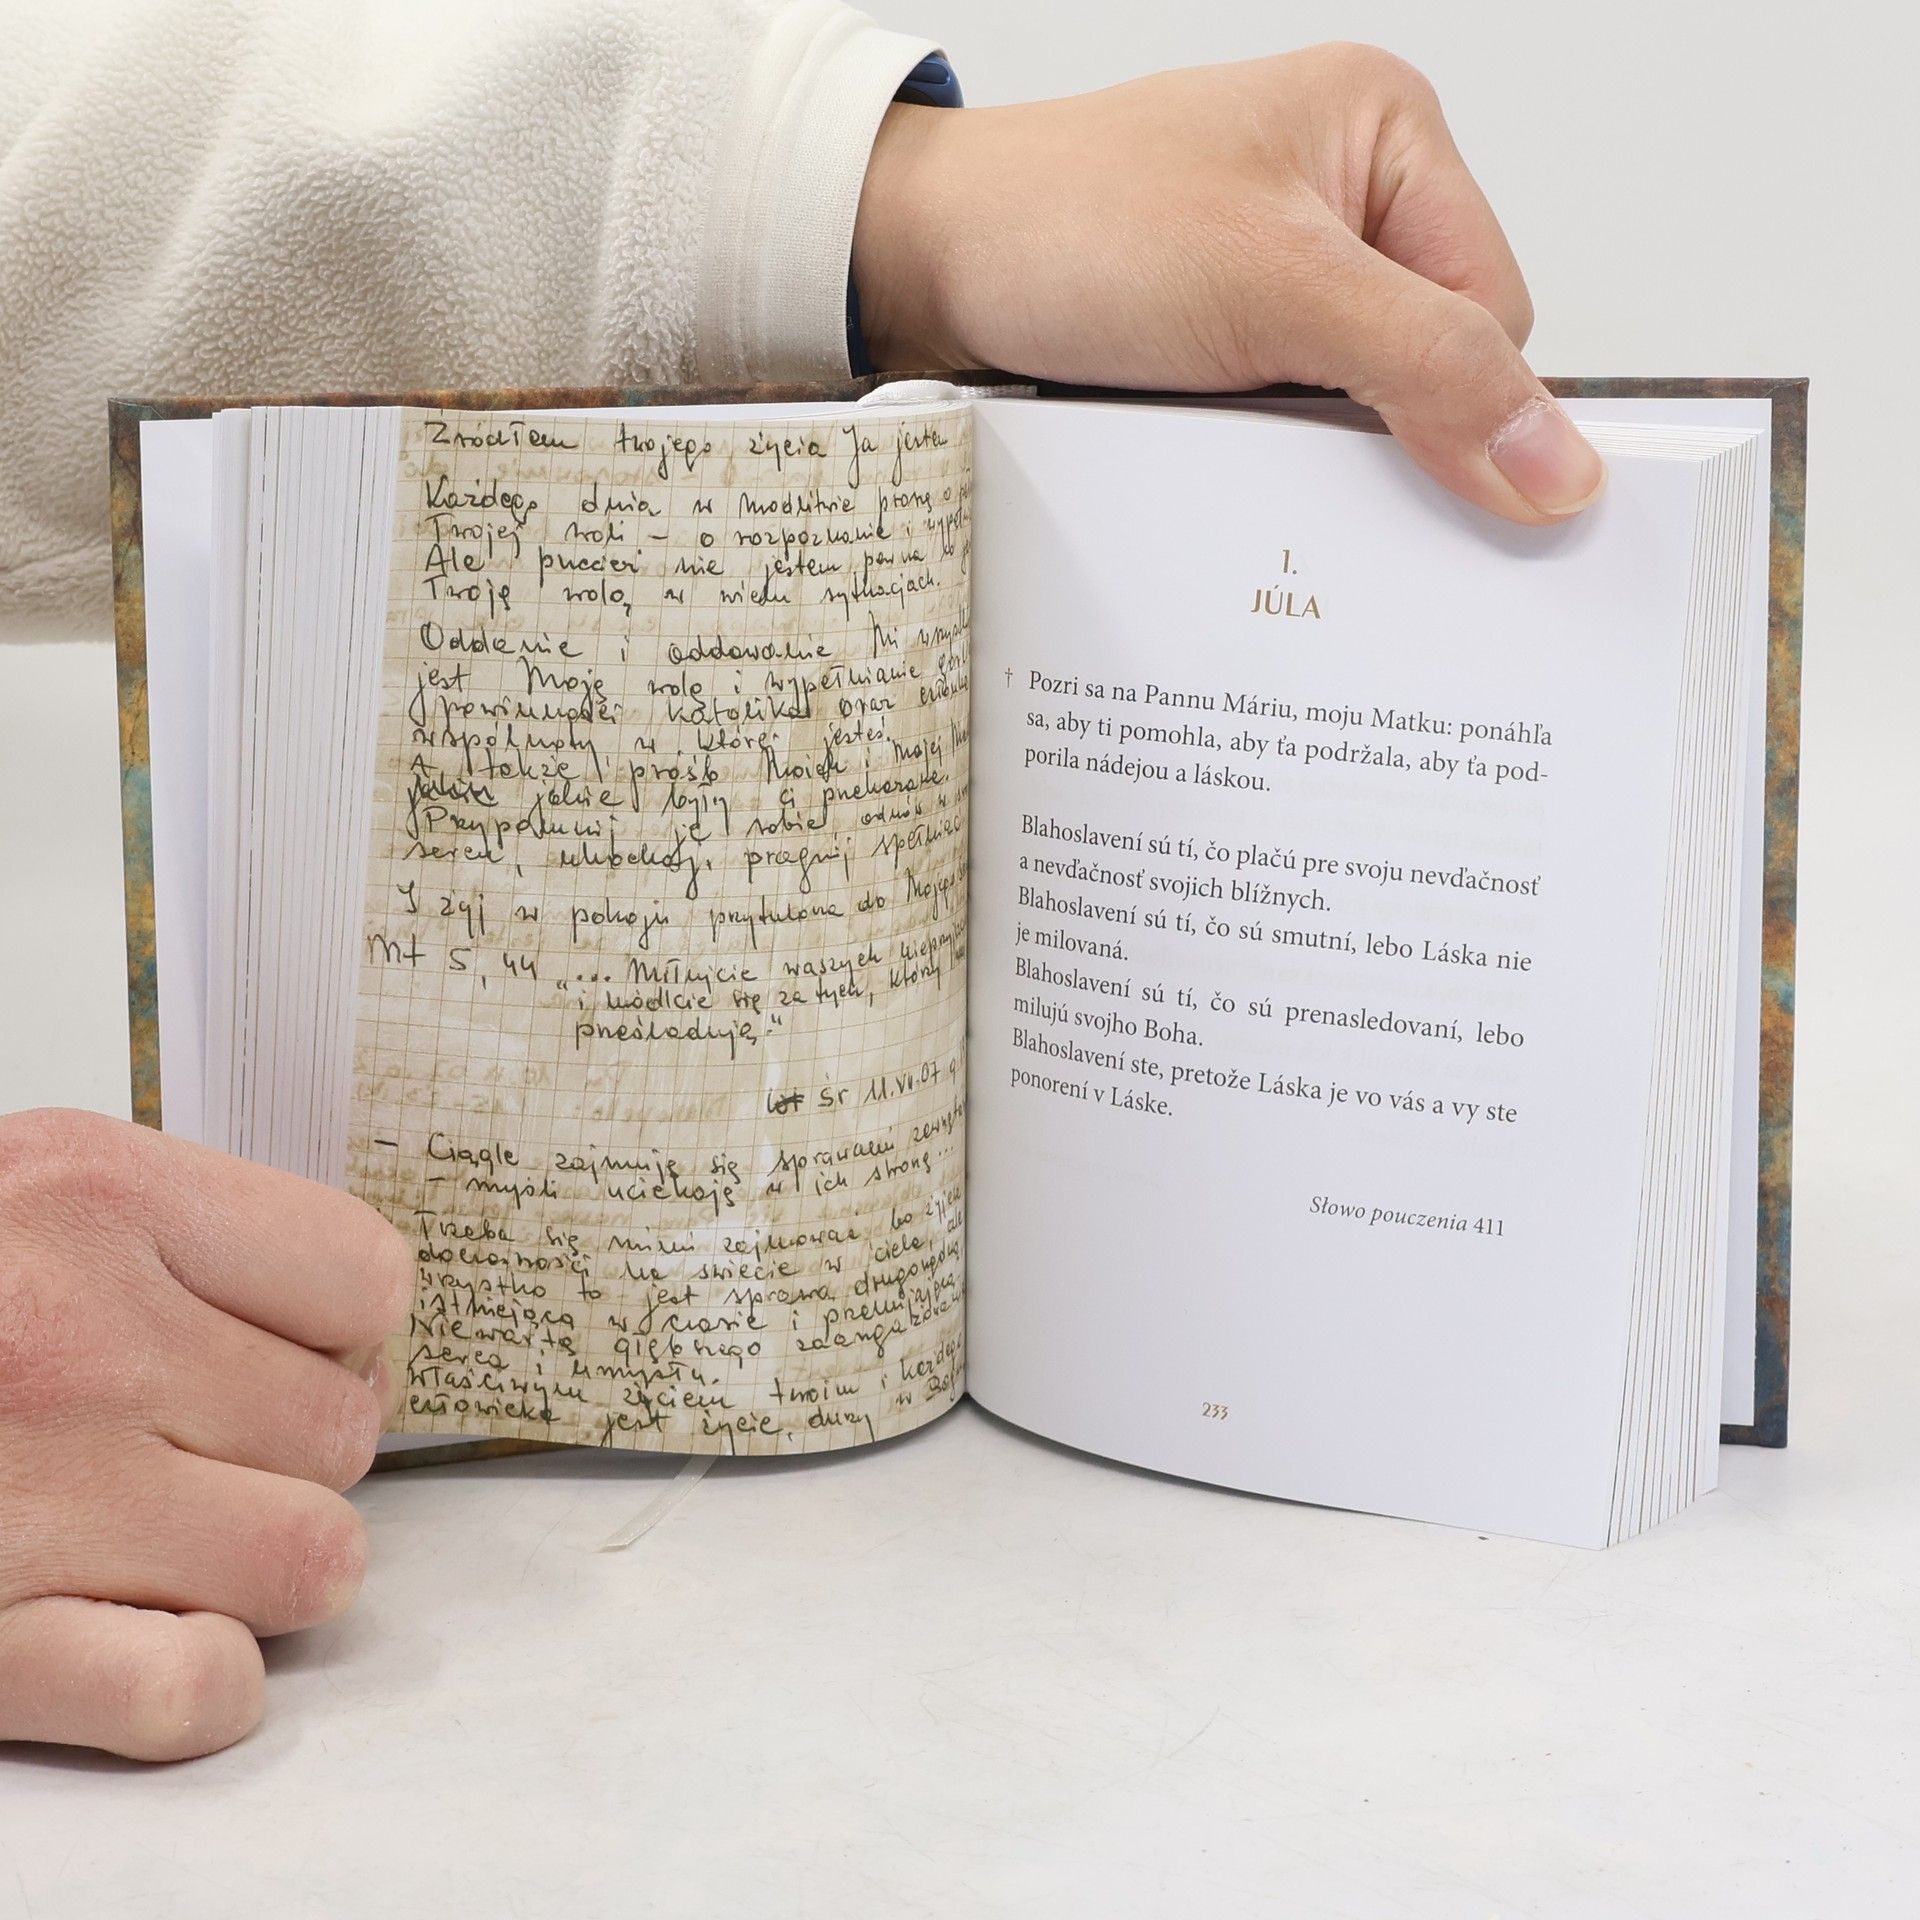 Źródłem twojego życia Ja jestem
Każdego dnia w modlitwie proszę o
Twojej woli – o rozpoznanie i
Ale przecież nie jestem pewna
Twoję wolę, w wielu sytuacjach.
Oddanie i oddawanie Mi
jest Moją wolą i wypełnianie
powinności katolika oraz
wspólnoty w której jesteś.
A także i próśb Moich i Mojej
jakie były ci przekazane.
Przypomnij ję sobie, odnów w
sercu, ukochaj, pragnij spełniać
I żyj w pokoju przytulona do Mojego
Mt 5, 44 „... Miłujcie waszych
i módlcie się za tych, którzy
prześladują."
śr 11.VII.07
– Ciągle zajmują się sprawami
– myśli uciekają w ich stronę...
Trzeba się nimi zajmować bo żyjesz
na świecie w ciele, ale
wszystko to jest sprawą drugorzędną
istniejącą w czasie i przemijającą.
Nie wartą głębszego
serca i umysłu.
Właściwym życiem twoim i każdego
człowieka jest życie duszy w
1.
JÚLA
† Pozri sa na Pannu Máriu, moju Matku: ponáhľa
sa, aby ti pomohla, aby ťa podržala, aby ťa pod-
porila nádejou a láskou.
Blahoslavení sú tí, čo plačú pre svoju nevďačnosť
a nevďačnosť svojich blížnych.
Blahoslavení sú tí, čo sú smutní, lebo Láska nie
je milovaná.
Blahoslavení sú tí, čo sú prenasledovaní, lebo
milujú svojho Boha.
Blahoslavení ste, pretože Láska je vo vás a vy ste
ponorení v Láske.
Słowo pouczenia 411
233